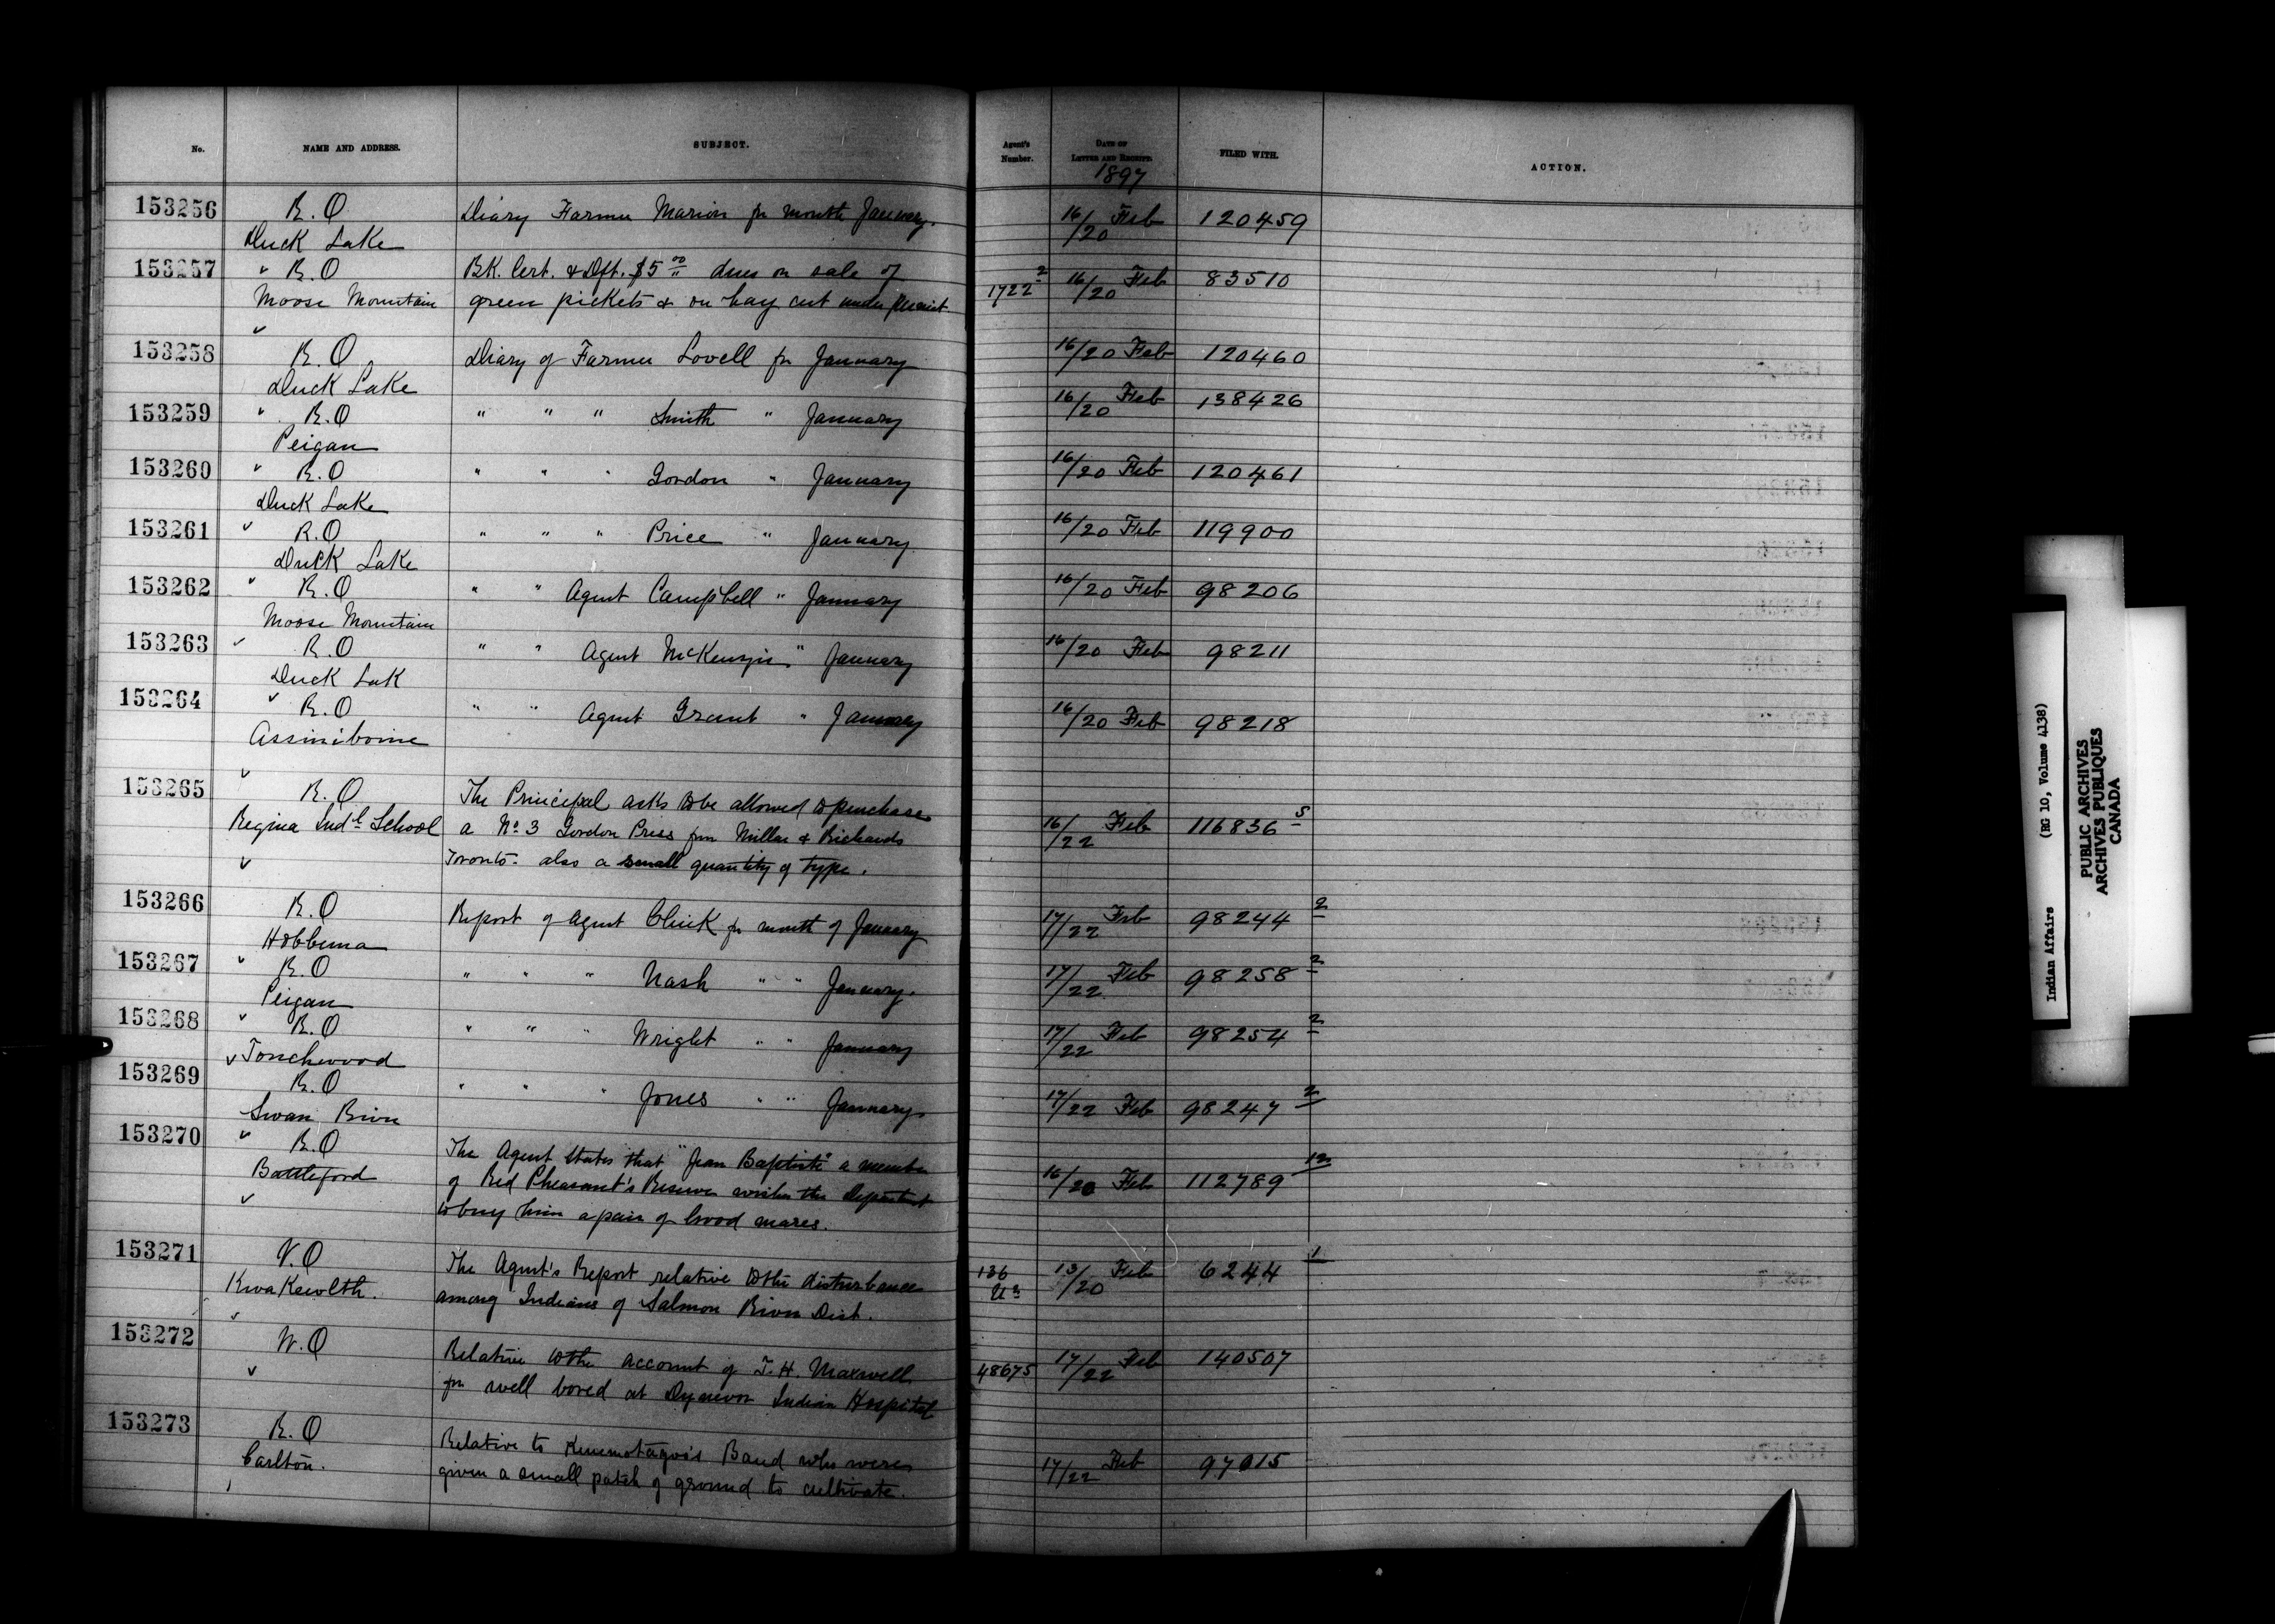 No. NAME AND ADDRESS. SUBJECT. Agent's Number. DATE OF LETTER AND RECEIPT. FILED WITH. ACTION.
1897
153256 R.O Diary Farmer Marion for month January. 16/20 Feb 120459
Duck Lake
153257 " R.O BK. Cert. & Dft. $5 00/" dues on sale of 1722 2 16/20 Feb 83510
Moose Mountain green pickets & on hay cut under permit
153258 R.O Diary of Farmer Lovell for January 16/20 Feb 120460
Duck Lake
153259 R.O " " " Smith " January 16/20 Feb 138426
Peigan
153260 R.O " " " Gordon " January 16/20 Feb 120461
Duck Lake
153261 R.O " " " Price " January 16/20 Feb 119900
Duck Lake
153262 R.O " " Agent Campbell " January 16/20 Feb 98206
Moose Mountain
153263 R.O " " Agent McKenzie " January 16/20 Feb 98211
Duck Lak
153264 R.O " " Agent Grant " January 16/20 Feb 98218
Assiniboine
153265 R.O The Principal asks to be allowed to purchase
Regina Indl School a No. 3 Gordon Press from Millar & Richards 16/22 Feb 116836 5
Toronto - also a small quantity of type.
153266 R.O Report of Agent Clink for month of January 17/22 Feb 98244 2
Hobbema
153267 R.O " " " Nash " " January. 17/22 Feb 98258 2
Peigan
153268 R.O " " " Wright " " January 17/22 Feb 98254 2
Touchwood
153269 R.O " " " Jones " " January. 17/22 Feb 98247 2
Swan River
153270 R.O The Agent states that "Jean Baptiste" a member
Battleford of Red Pheasant's Reserve wishes the Department 16/20 Feb 112789 12
to buy him a pair of brood mares.
153271 V.O The Agent's Report relative to the disturbance 136 13/20 Feb 6244 1
Kwakewlth. among Indians of Salmon River Dist.
153272 W.O Relative to the account of T.H. Maxwell 48675 17/22 Feb 140507
for well bored at Dynevor Indian Hospital
153273 R.O Relative to Band who were
Carlton. given a small patch of ground to cultivate. 17/22 Feb 97015
Indian Affairs (RG 10, Volume 4138)
PUBLIC ARCHIVES
ARCHIVES PUBLIQUES
CANADA